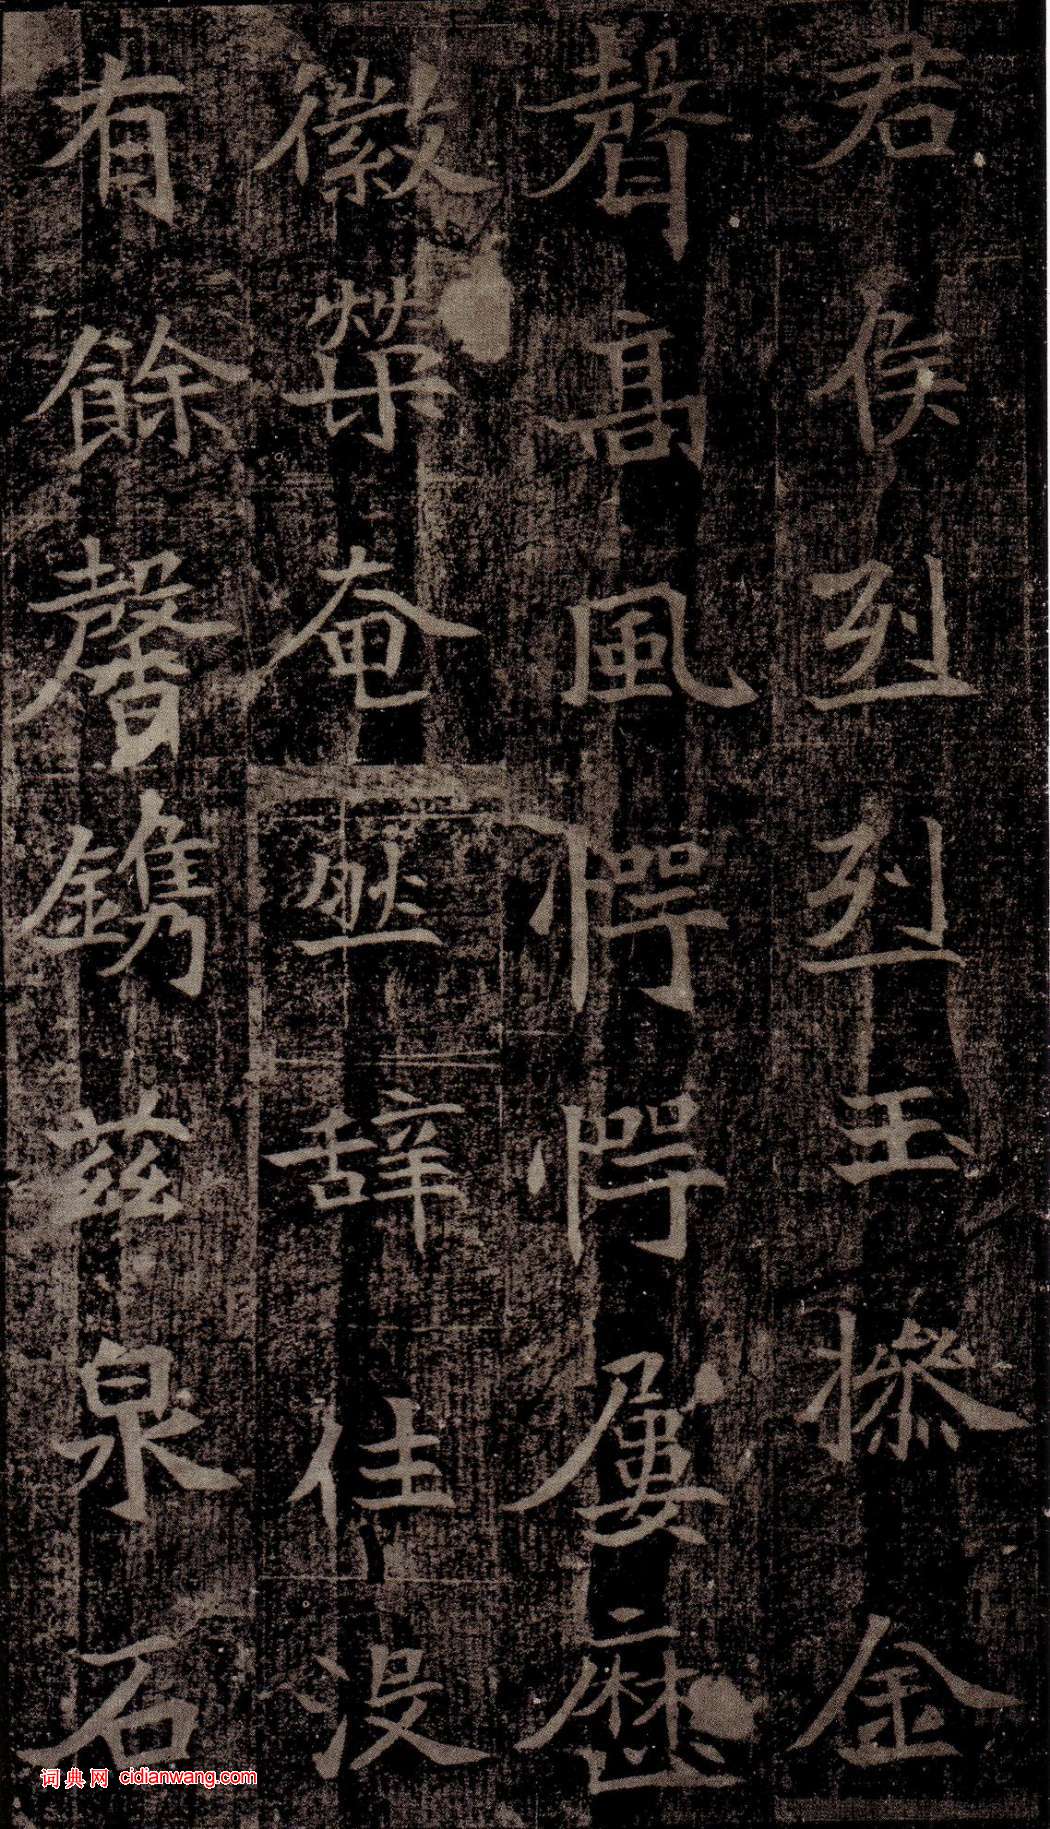 君侯烈烈玉操金
聲高風愕愕屢歴
徽榮奄無辤住没
有餘馨鐫茲泉石
词典网 cidianwang.com